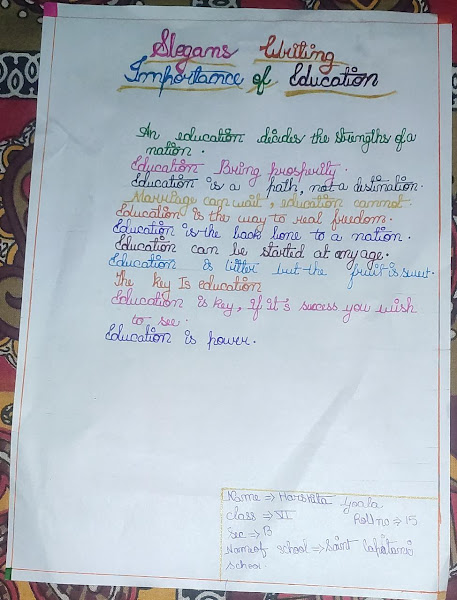 Slogans Writing
Importance of Education
An education decides the strengths of a
nation.
Education Bring prosperity.
Education is a path, not a destination.
Marriage can wait, education cannot.
Education is the way to real freedom.
Education is the back bone to a nation.
Education can be started at any age.
Education Is bitter but the fruit is sweet.
The key Is education
Education is key, If it's success you wish
to see.
Education is power.
Name ⇒ Harshita Goala
Class ⇒ VI Roll no ⇒ 15
Sec ⇒ B
Name of school ⇒ Saint
School